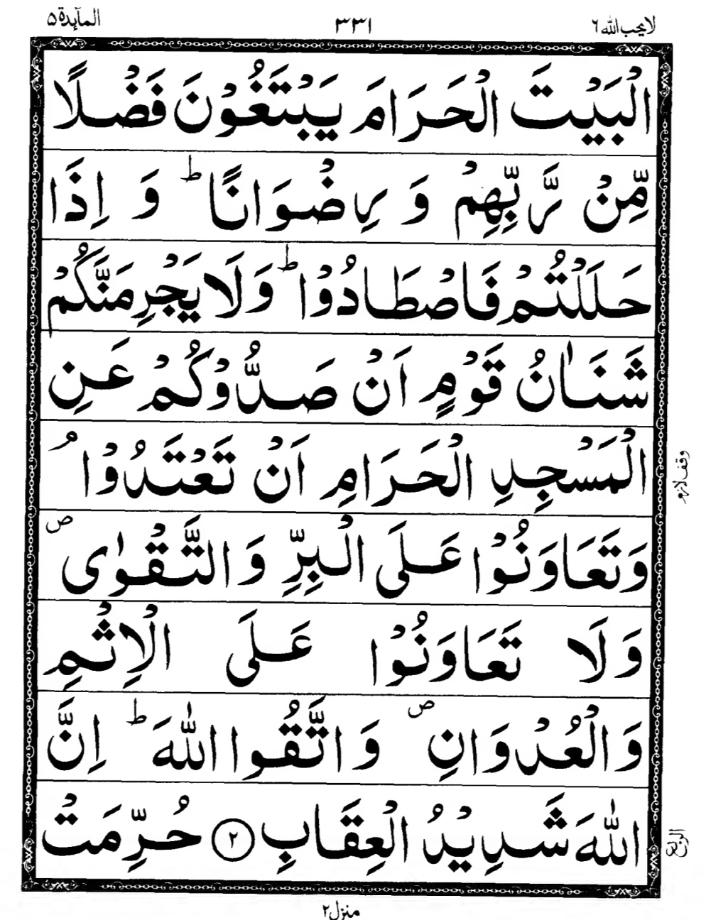 لایحب الله ٦ ٣٣١ المآىِٕدة ٥
الْبَيْتَ الْحَرَامَ يَبْتَغُوْنَ فَضْلًا
مِّنْ رَّبِّهِمْ وَ رِضْوَانًا ؕ وَ اِذَا
حَلَلْتُمْ فَاصْطَادُوْا ؕ وَلَا يَجْرِمَنَّكُمْ
شَنَاٰنُ قَوْمٍ اَنْ صَدُّوْكُمْ عَنِ
الْمَسْجِدِ الْحَرَامِ اَنْ تَعْتَدُوْا ۘ
وقف لازم
وَتَعَاوَنُوْا عَلَى الْبِرِّ وَالتَّقْوٰى ۪
وَلَا تَعَاوَنُوْا عَلَى الْاِثْمِ
وَالْعُدْوَانِ ۪ وَاتَّقُوا اللّٰهَ ؕ اِنَّ
اللّٰهَ شَدِيْدُ الْعِقَابِ ۝٢ حُرِّمَتْ
الربع
منزل ٢